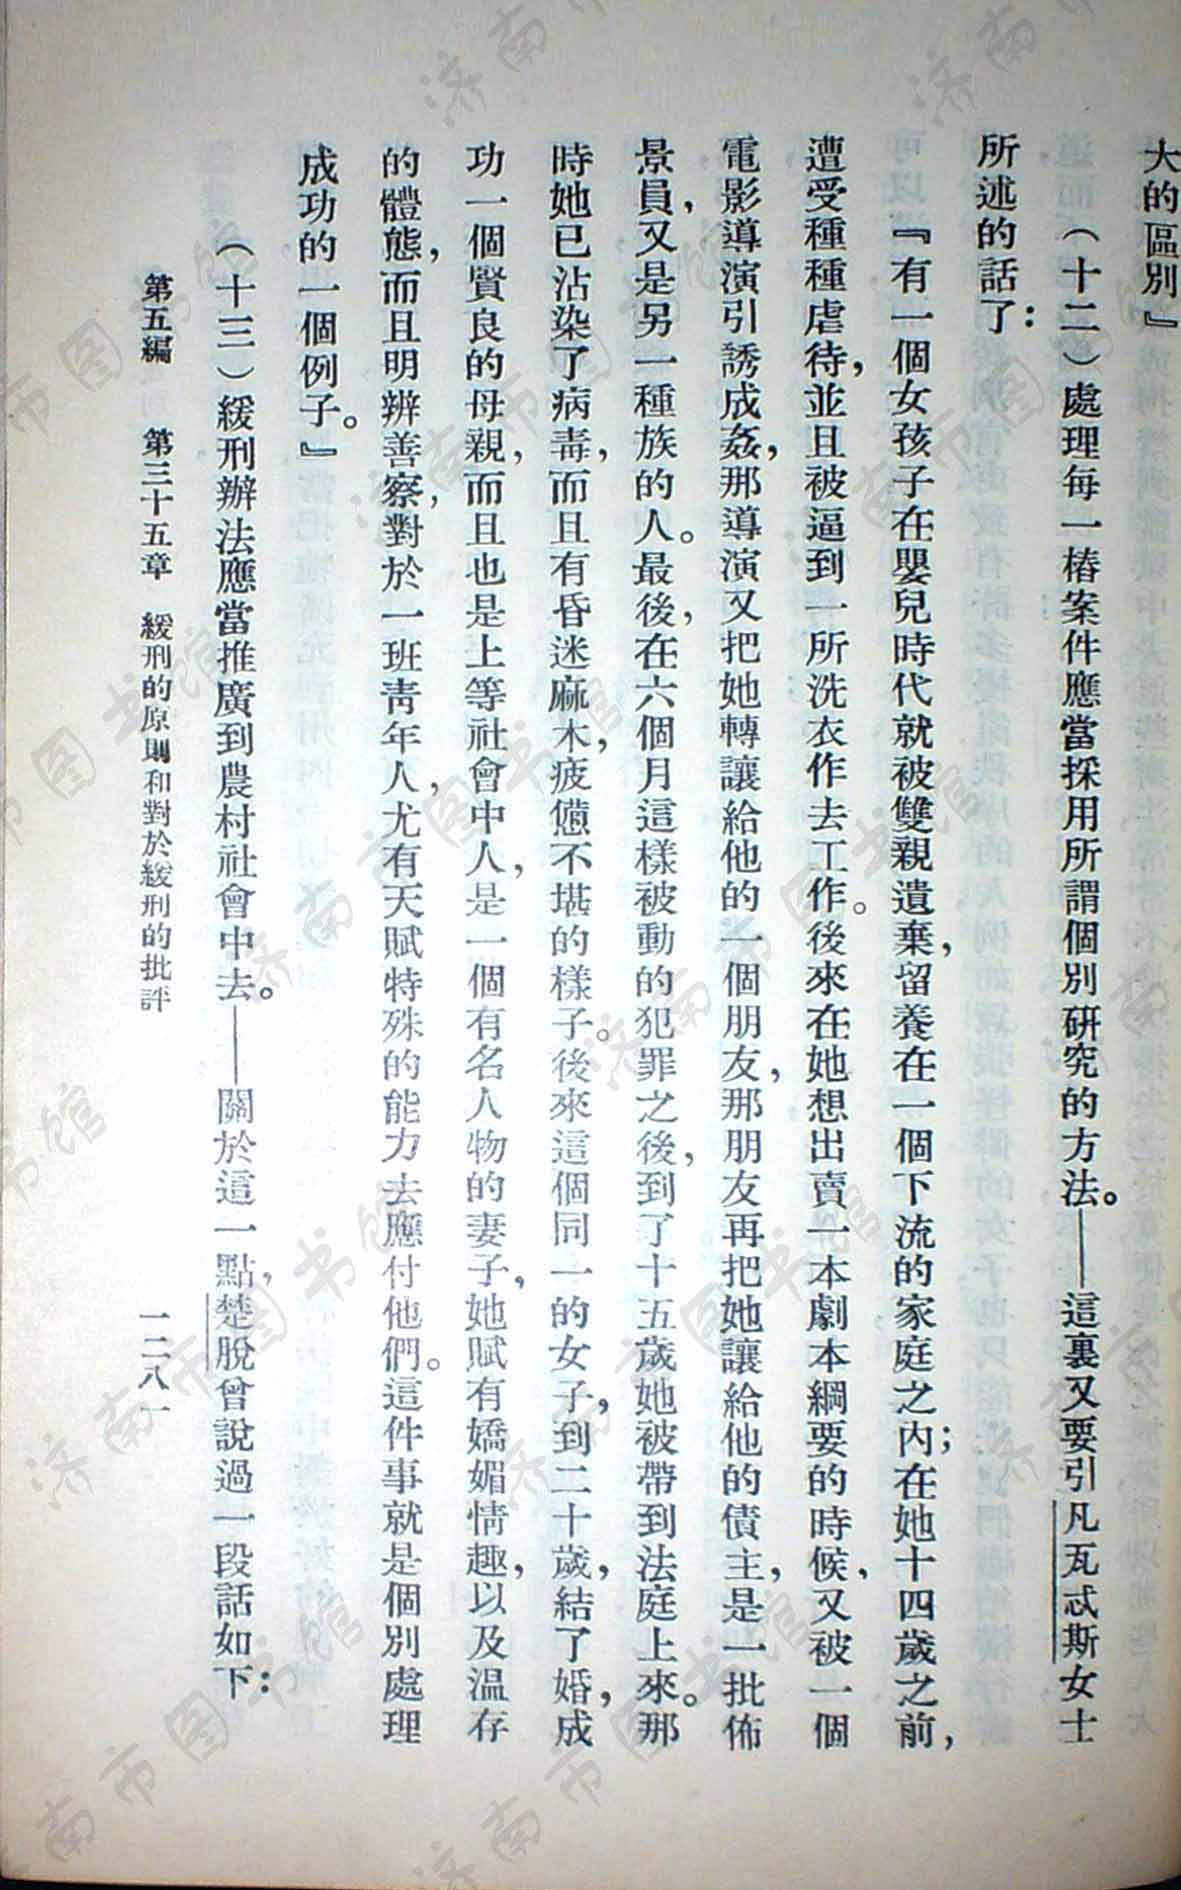 大的區別』
（十二）處理每一樁案件應當採用所謂個別研究的方法。——這裏又要引凡瓦忒斯女士
所述的話了：
『有一個女孩子在嬰兒時代就被雙親遺棄，留養在一個下流的家庭之內；在她十四歲之前，
遭受種種虐待，並且被逼到一所洗衣作去工作。後來在她想出賣一本劇本綱要的時候，又被一個
電影導演引誘成姦，那導演又把她轉讓給他的一個朋友，那朋友再把她讓給他的債主，是一批佈
景員，又是另一種族的人。最後，在六個月這樣被動的犯罪之後，到了十五歲她被帶到法庭上來。那
時她已沾染了病毒，而且有昏迷麻木，疲憊不堪的樣子。後來這個同一的女子，到二十歲，結了婚，成
功一個賢良的母親，而且也是上等社會中人，是一個有名人物的妻子，她賦有嬌媚情趣，以及溫存
的體態，而且明辨善察，對於一班青年人，尤有天賦特殊的能力去應付他們。這件事就是個別處理
成功的一個例子。』
（十三）緩刑辦法應當推廣到農村社會中去。——關於這一點，楚脫曾說過一段話如下：
第五編　第三十五章　緩刑的原則和對於緩刑的批評　一二八一
濟南市图书馆